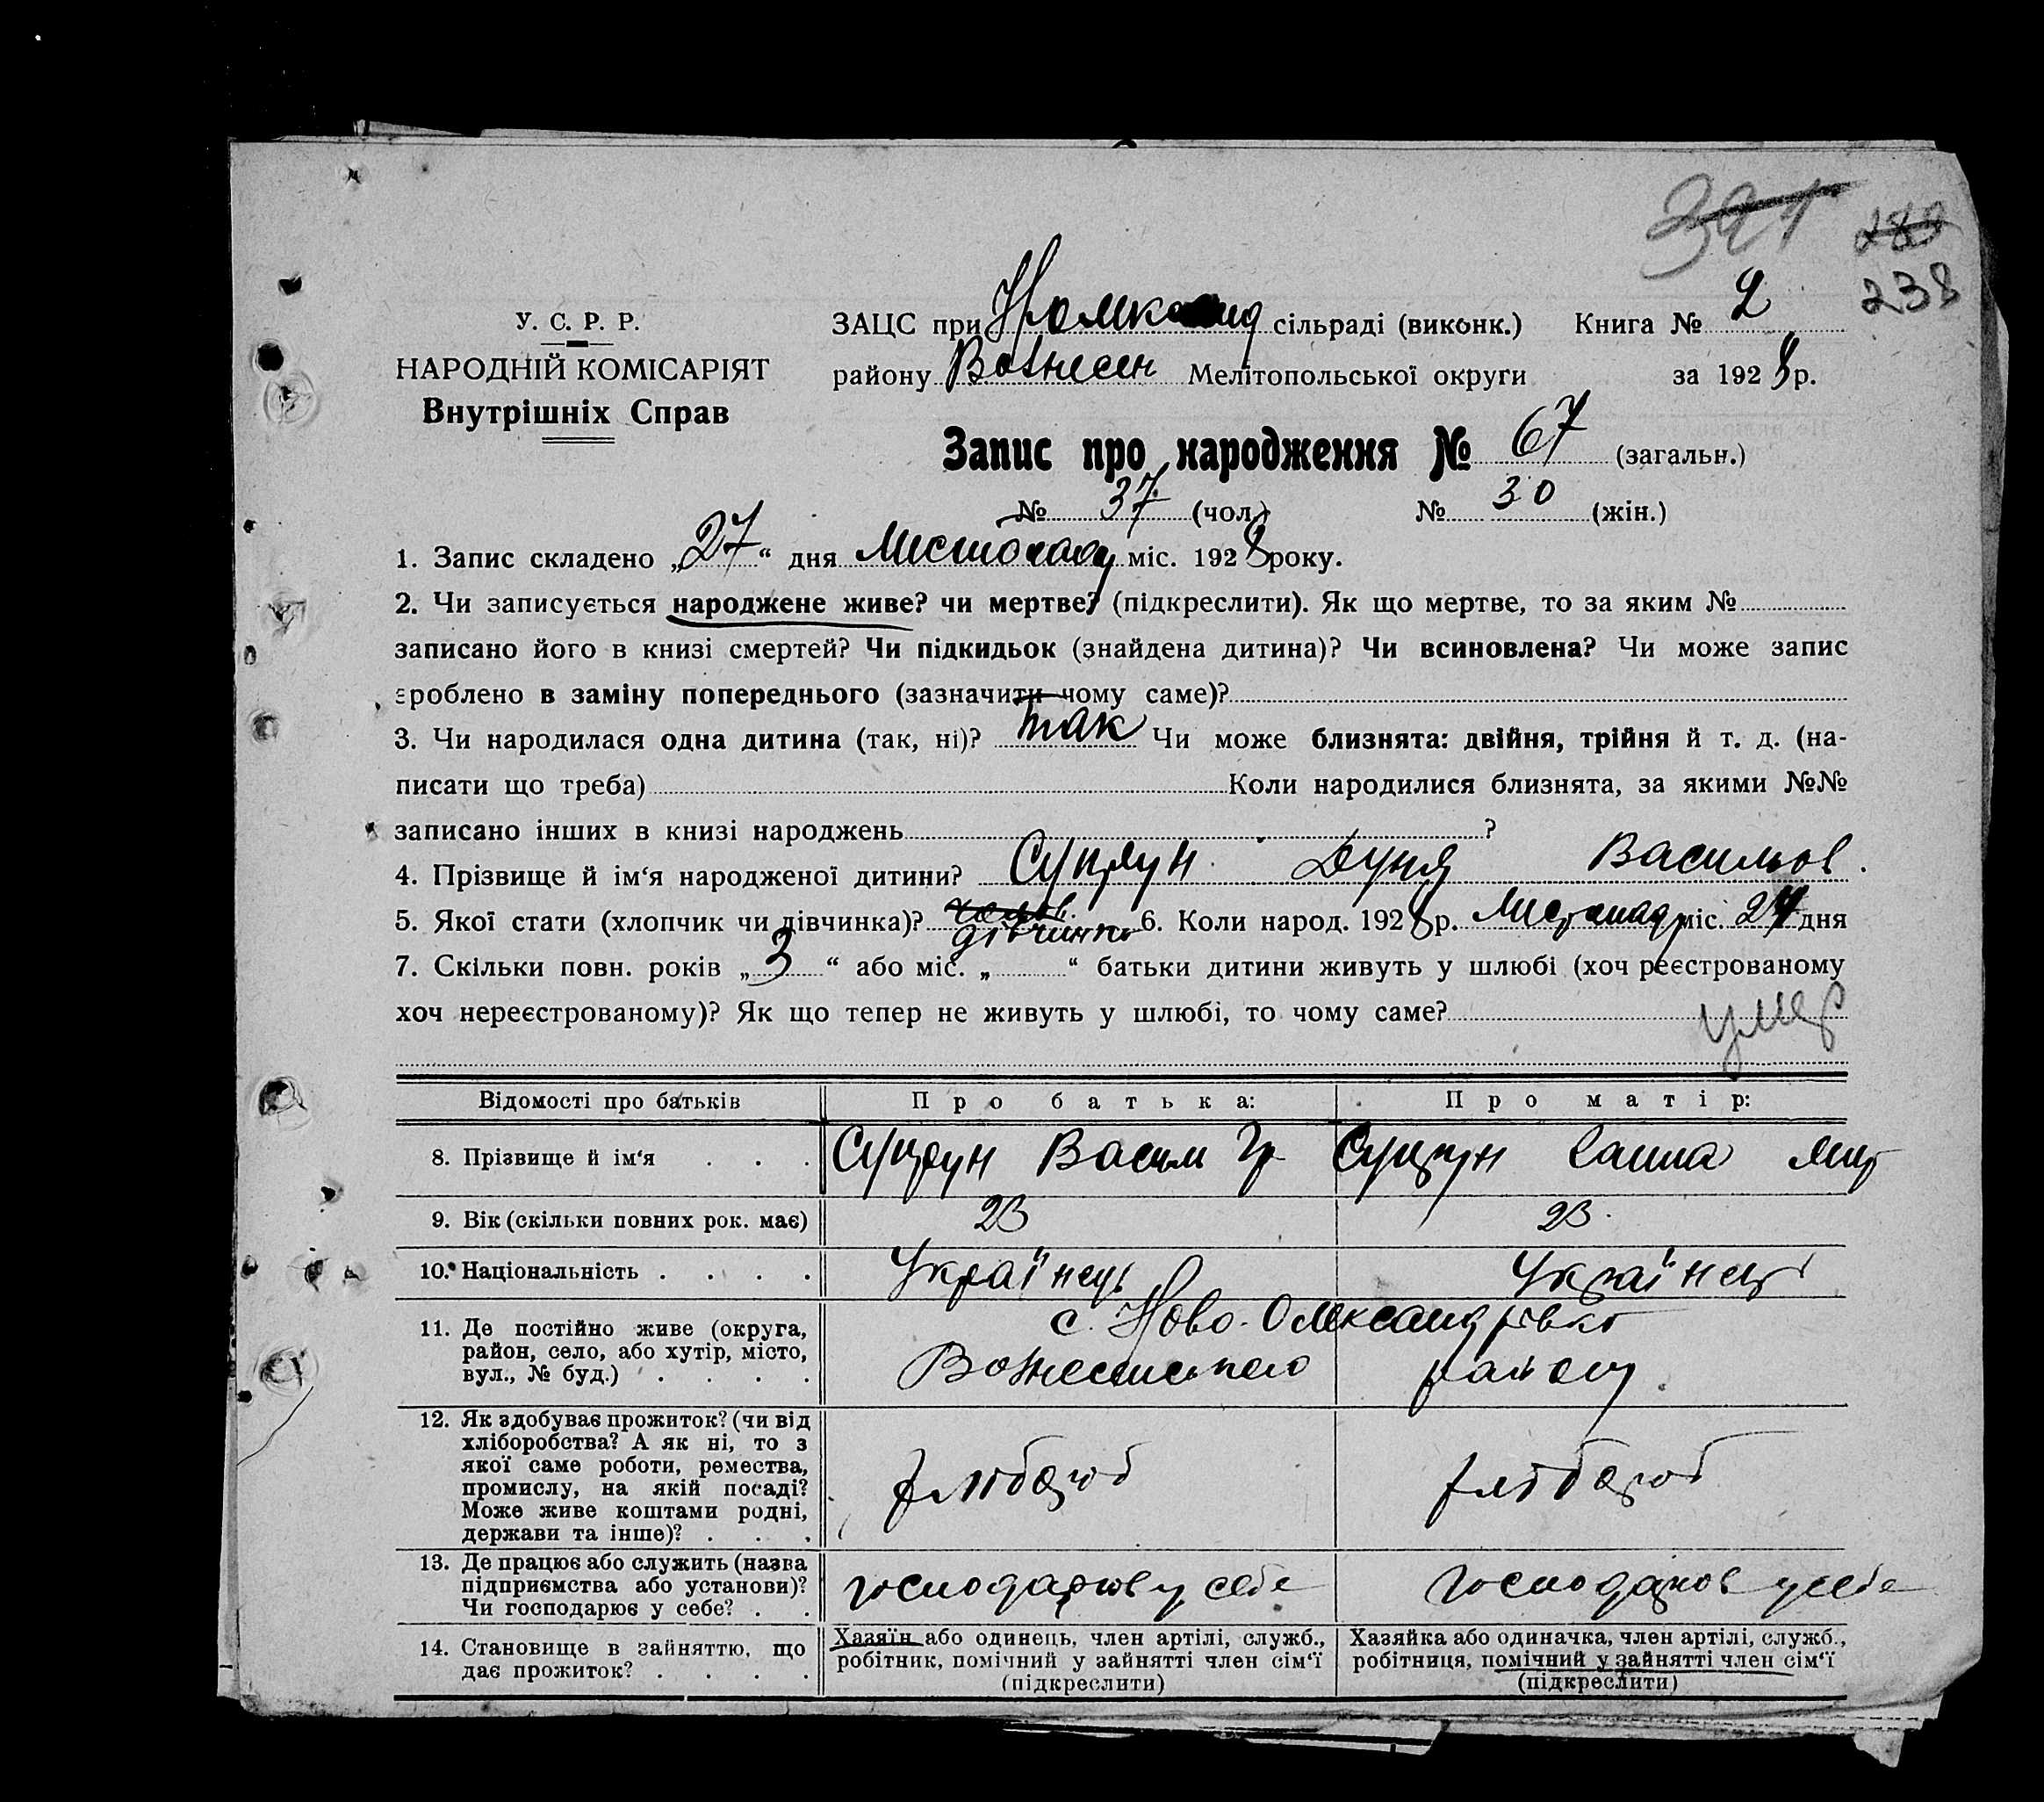 391 289
238
У. С. Р. Р.
НАРОДНІЙ КОМІСАРІЯТ
Внутрішніх Справ
ЗАЦС при сільраді (виконк.) Книга № 2
району Вознесен Мелітопольської округи за 1928 р.
Запис про народження № 67 (загальн.)
№ 37 (чол.) № 30 (жін.)
1. Запис складено „27“ дня Листопаду міс. 1928 року.
2. Чи записується народжене живе? чи мертве? (підкреслити). Як що мертве, то за яким №
записано його в книзі смертей? Чи підкидьок (знайдена дитина)? Чи всиновлена? Чи може запис
зроблено в заміну попереднього (зазначити чому саме)?
3. Чи народилася одна дитина (так, ні)? так Чи може близнята: двійня, трійня й т. д. (на-
писати що треба) Коли народилися близнята, за якими №№
записано інших в книзі народжень ?
4. Прізвище й ім‘я народженої дитини? Супрун Дуня Васильов.
5. Якої стати (хлопчик чи дівчинка)? дівчинка 6. Коли народ. 1928 р. Листопаду міс. 24 дня
7. Скільки повн. років „3“ або міс. „ “ батьки дитини живуть у шлюбі (хоч реєстрованому
хоч нереєстрованому)? Як що тепер не живуть у шлюбі, то чому саме?
умер
Відомості про батьків Про батька: Про матір:
8. Прізвище й ім‘я . . . Супрун Васил Гр Супрун Ганна
9. Вік (скільки повних рок. має) 23 23
10. Національність . . . . Українець Українець
11. Де постійно живе (округа,
район, село, або хутір, місто,
вул., № буд.) . . . .
с. Ново-Олександрівка
Вознесенського району
12. Як здобуває прожиток? (чи від
хліборобства? А як ні, то з
якої саме роботи, ремества,
промислу, на якій посаді?
Може живе коштами родні,
держави та інше)? . . .
хлібороб хлібороб
13. Де працює або служить (назва
підприємства або установи)?
Чи господарює у себе? . .
господарює у себе господарює у себе
14. Становище в зайняттю, що
дає прожиток? . . . .
Хазяїн або одинець, член артілі, служб.,
робітник, помічний у зайнятті член сім‘ї
(підкреслити)
Хазяйка або одиначка, член артілі, служб.,
робітниця, помічний у зайнятті член сім‘ї
(підкреслити)